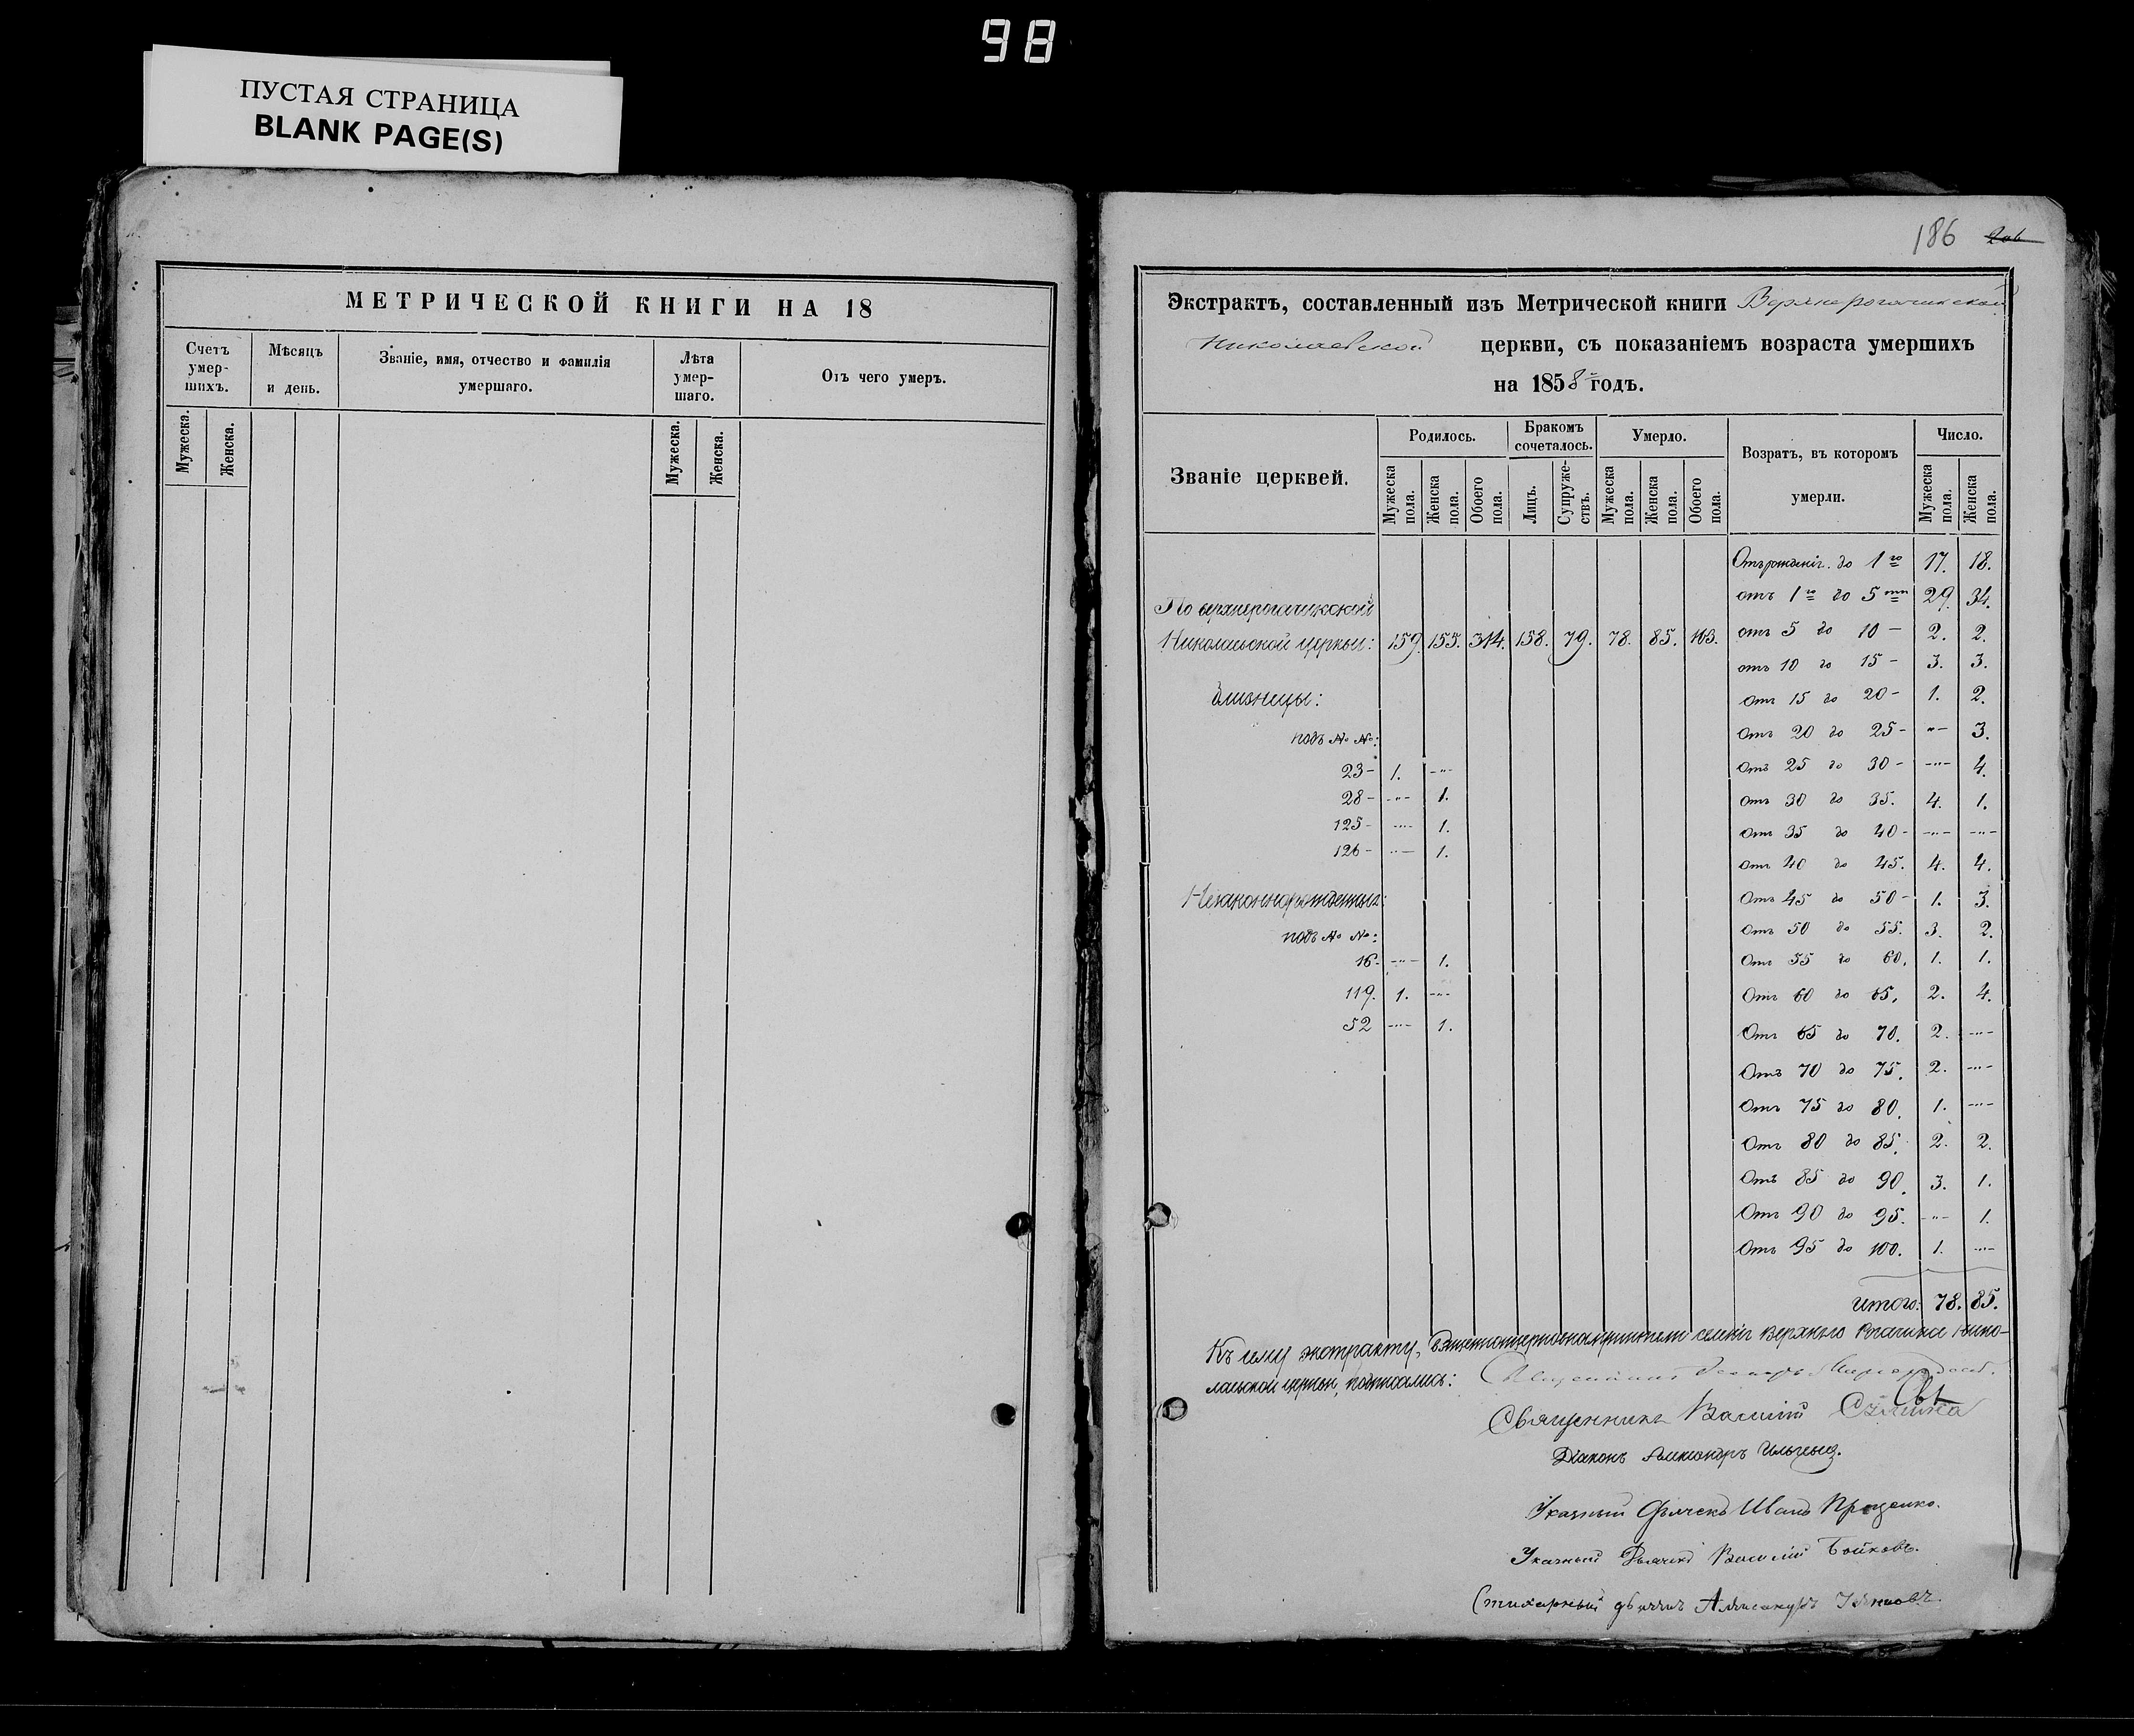 98
ПУСТАЯ СТРАНИЦА
BLANK PAGE(S)
МЕТРИЧЕСКОЙ КНИГИ НА 18
Счетъ умер- шихъ.
Мѣсяцъ и день.
Званіе, имя, отчество и фамилія умершаго.
Лѣта умер- шаго.
Отъ чего умеръ.
Мужеска. Женска. Мужеска. Женска.
186 206
Экстрактъ, составленный изъ Метрической книги Верхнерогачикской
Николаевской церкви, съ показаніемъ возраста умершихъ
на 1858 й годъ.
Званіе церквей.
Родилось.
Бракомъ сочеталось.
Умерло.
Возратъ, въ которомъ умерли.
Число.
Мужеска пола. Женска пола. Обоего пола. Лицъ. Супруже- ствъ. Мужеска пола. Женска пола. Обоего пола. Мужеска пола. Женска пола.
По верхнерогачикской
Николаевской церкви: 159. 155. 314. 158. 79. 78. 85. 163.
Близнецы:
подъ № №:
23- 1. -"-
28- -"- 1.
125- -"- 1.
126- -"- 1.
Незаконнорожденныя:
подъ № №:
16- -"- 1.
119. 1. -"-
52 -"- 1.
Отъ рожденія до 1 го 17. 18.
отъ 1 го до 5 ти 29. 34.
отъ 5 до 10 - 2. 2.
отъ 10 до 15 - 3. 3.
отъ 15 до 20 - 1. 2.
отъ 20 до 25 - -"- 3.
Отъ 25 до 30 - -"- 4.
отъ 30 до 35. 4. 1.
отъ 35 до 40 - -"- -"-
отъ 40 до 45. 4. 4.
Отъ 45 до 50 - 1. 3.
отъ 50 до 55. 3. 2.
Отъ 55 до 60. 1. 1.
Отъ 60 до 65. 2. 4.
Отъ 65 до 70. 2. -"-
Отъ 70 до 75. 2. -"-
Отъ 75 до 80. 1. -"-
Отъ 80 до 85. 2. 2.
Отъ 85 до 90. 3. 1.
Отъ 90 до 95. -"- 1.
Отъ 95 до 100. 1. -"-
итого: 78. 85.
Къ сему экстракту, селенія Верхняго Рогачика Нико-
лаевской церкви, подписались: Священникъ
Священникъ Василій
Діаконъ Александръ
Указный Дьячекъ Иванъ Проценко.
Указный Дьячекъ Василій Бойковъ.
Стихарный дьячекъ Александръ